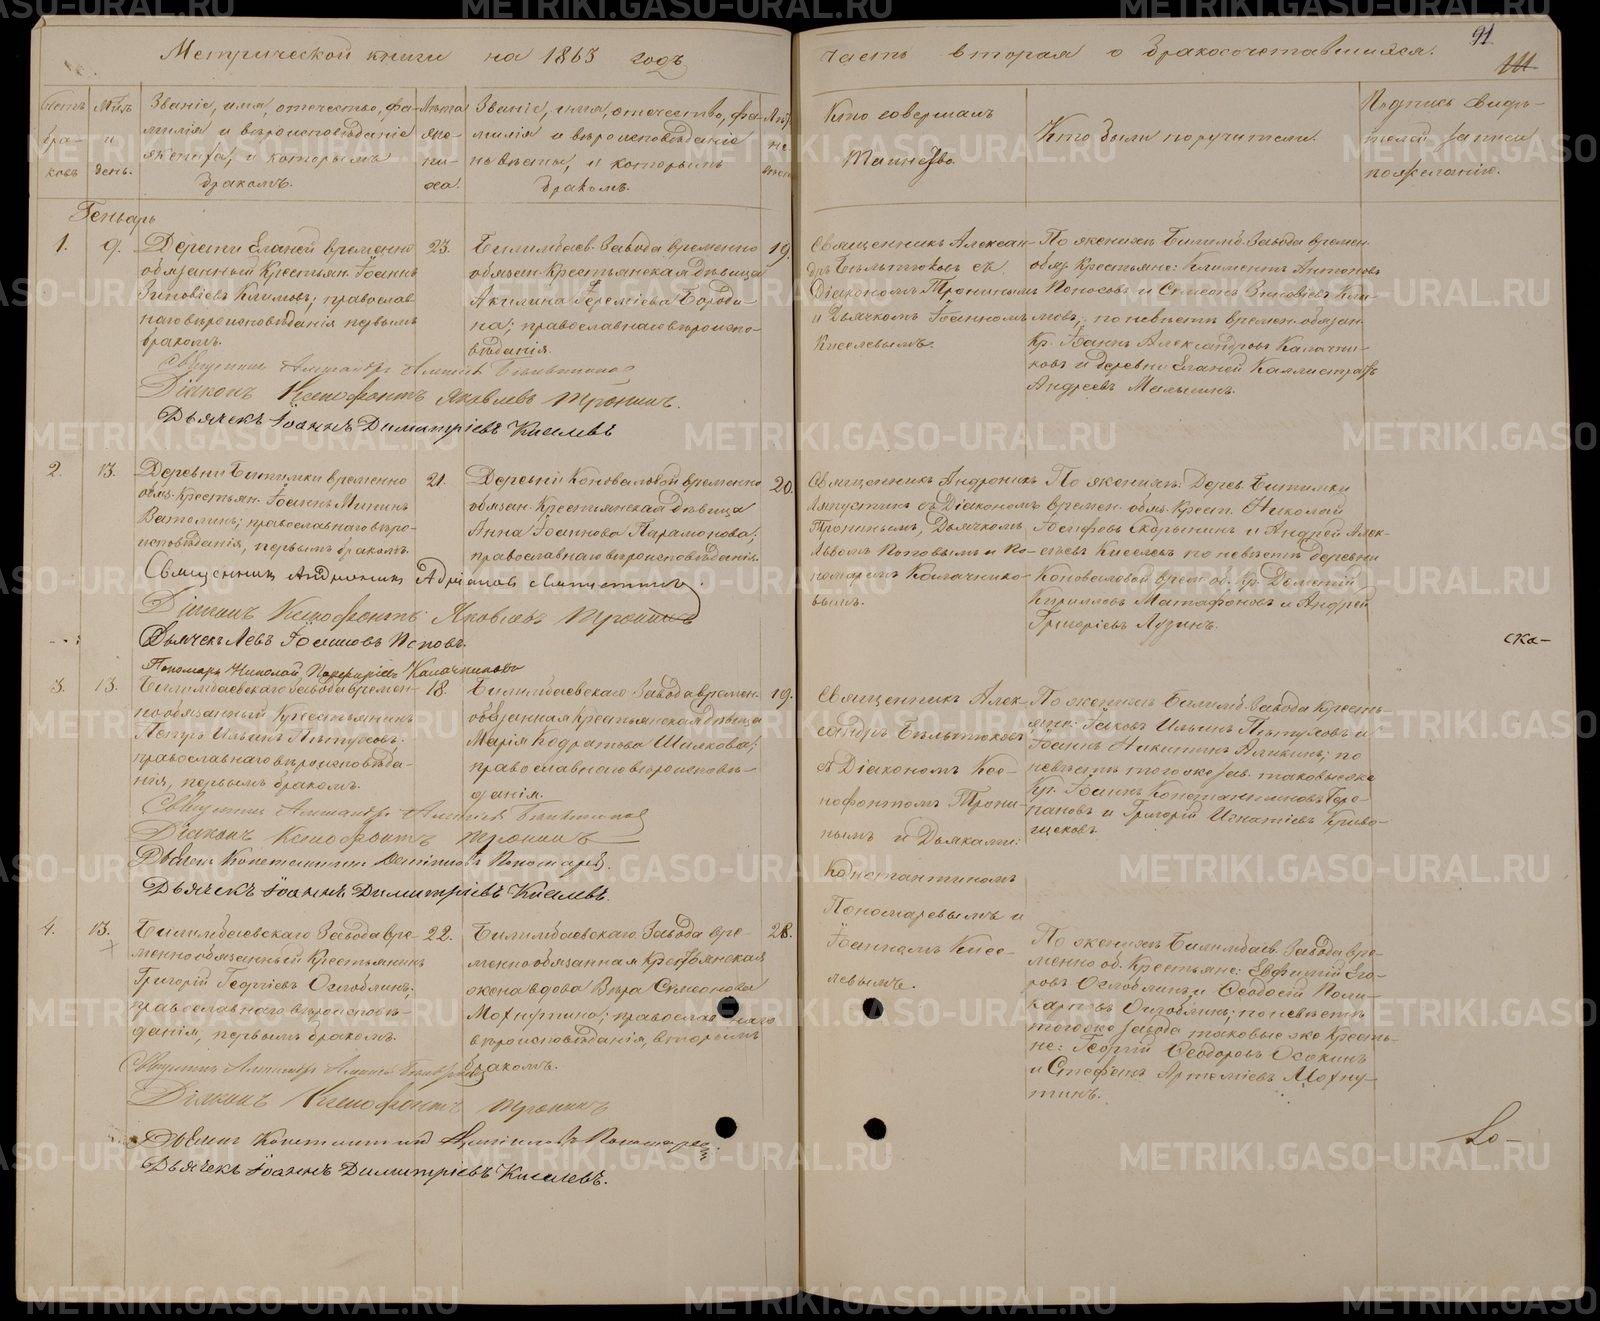 Метрической книги на 1863 годъ
часть вторая о бракосочетавшихся.
91
Счетъ браковъ
Мѣс. и день.
Званіе, имя, отечество, фа-
милія и вѣроисповѣданіе
жениха, и которымъ
бракомъ.
Лѣта
же-
ни-
ха.
Званіе, имя, отечество, фа-
милія и вѣроисповѣданіе
невѣсты, и которымъ
бракомъ.
Кто совершалъ
Таинство.
Кто были поручители.
Подпись свидѣ-
телей записи
по желанію.
Геньварь
1.
9.
Деревни Еланей временно
обязанный Крестьян. Іоаннъ
Зиновіевъ Климовъ; православ-
наго вѣроисповѣданія первымъ
бракомъ.
23.
Билимбаев. Завода временно
обязан. Крестьянская дѣвица
Акилина Іереміева Бороди-
на; православнаго вѣроиспо-
вѣданія.
19.
Священникъ Алексан-
дръ Бѣльтюковъ съ
Діакономъ Тронинымъ
и Дьячкомъ Іоанномъ
Киселевымъ.
По женихѣ Билимб. Завода времен.
обяз. Крестьяне: Климентъ Антоновъ
Поносовъ и Симеонъ Зиновіевъ Кли-
мовъ; по невѣстѣ времен. обязан.
Кр. Іоаннъ Александровъ Калачни-
ковъ и деревни Еланей Каллистратъ
Андреевъ Малыгинъ.
Діаконъ Ксенофонтъ Яковлевъ Тронинъ.
Дьячекъ Іоаннъ Димитріевъ Киселевъ
2.
13.
Деревни Битимки временно
обяз. Крестьян. Іоаннъ Мининъ
Ватолинъ; православнаго вѣро-
исповѣданія, первымъ бракомъ.
21.
Деревни Коноваловой временно
обязан. Крестьянская дѣвица
Анна Іоаннова Парамонова;
православнаго вѣроисповѣданія.
20.
Священникъ Андроникъ
съ Діакономъ
Тронинымъ, Дьячкомъ
Львомъ Поповымъ и По-
номаремъ Калачнико-
вымъ.
По женихѣ: Дерев. Битимки
времен. обяз. Крест. Николай
Іосифовъ Скорынинъ и Андрей Алек-
сѣевъ Киселевъ по невѣстѣ деревни
Коноваловой врем. об. Кр. Дометій
Кирилловъ Матафоновъ и Андрей
Григоріевъ Лузинъ.
Діаконъ Ксенофонтъ Яковлевъ Тронинъ
Дьячекъ Левъ Поповъ.
Пономарь Николай Порфиріевъ Калачниковъ
ска-
3.
13.
Билимбаевскаго Завода времен-
но обязанный Крестьянинъ
Петръ Ильинъ Пѣтуховъ.
православнаго вѣроисповѣда-
нія, первымъ бракомъ.
18.
Билимбаевскаго Завода времен.
обязанная Крестьянская дѣвица
Марія Кодратова Шилкова;
православнаго вѣроисповѣ-
данія.
19.
Священникъ Алек-
сандръ Бѣльтюковъ
съ Діакономъ Ксе-
нофонтомъ Трони-
нымъ и Дьячками:
Константиномъ
Пономаревымъ и
Іоанномъ Кисе-
левымъ.
По женихѣ Билимб. Завода Кресть-
яни: Іаковъ Ильинъ Пѣтуховъ и
Іоаннъ Никитинъ Аликинъ; по
невѣстѣ тогоже зав. таковые же
Кр. Іоаннъ Константиновъ Чере-
пановъ и Григорій Игнатіевъ Криво-
щековъ
Діаконъ Ксенофонтъ Тронинъ
Дьячекъ Іоаннъ Димитріевъ Киселевъ.
4.
13.
Билимбаевскаго Завода вре-
менно обязанный Крестьянинъ
Григорій Георгіевъ Оглоблинъ;
православнаго вѣроисповѣ-
данія, первымъ бракомъ.
22.
Билимбаевскаго Завода вре-
менно обязанная Крестьянская
жена вдова Вѣра Симеонова
Мохнутина; православнаго
вѣроисповѣданія, вторымъ
бракомъ.
28.
По женихѣ Билимбаев. Завода вре-
менно об. Крестьяне: Евфимій Его-
ровъ Оглоблинъ и Ѳеодосій Поли-
карповъ Оглоблинъ; по невѣстѣ
тогоже завода таковые же Крестья-
не: Георгій Ѳеодоровъ Осокинъ
и Стефанъ Артеміевъ Мохну-
тинъ.
Діаконъ Ксенофонтъ Тронинъ
Дьячекъ Іоаннъ Димитріевъ Киселевъ.
METRIKI.GASO-URAL.RU